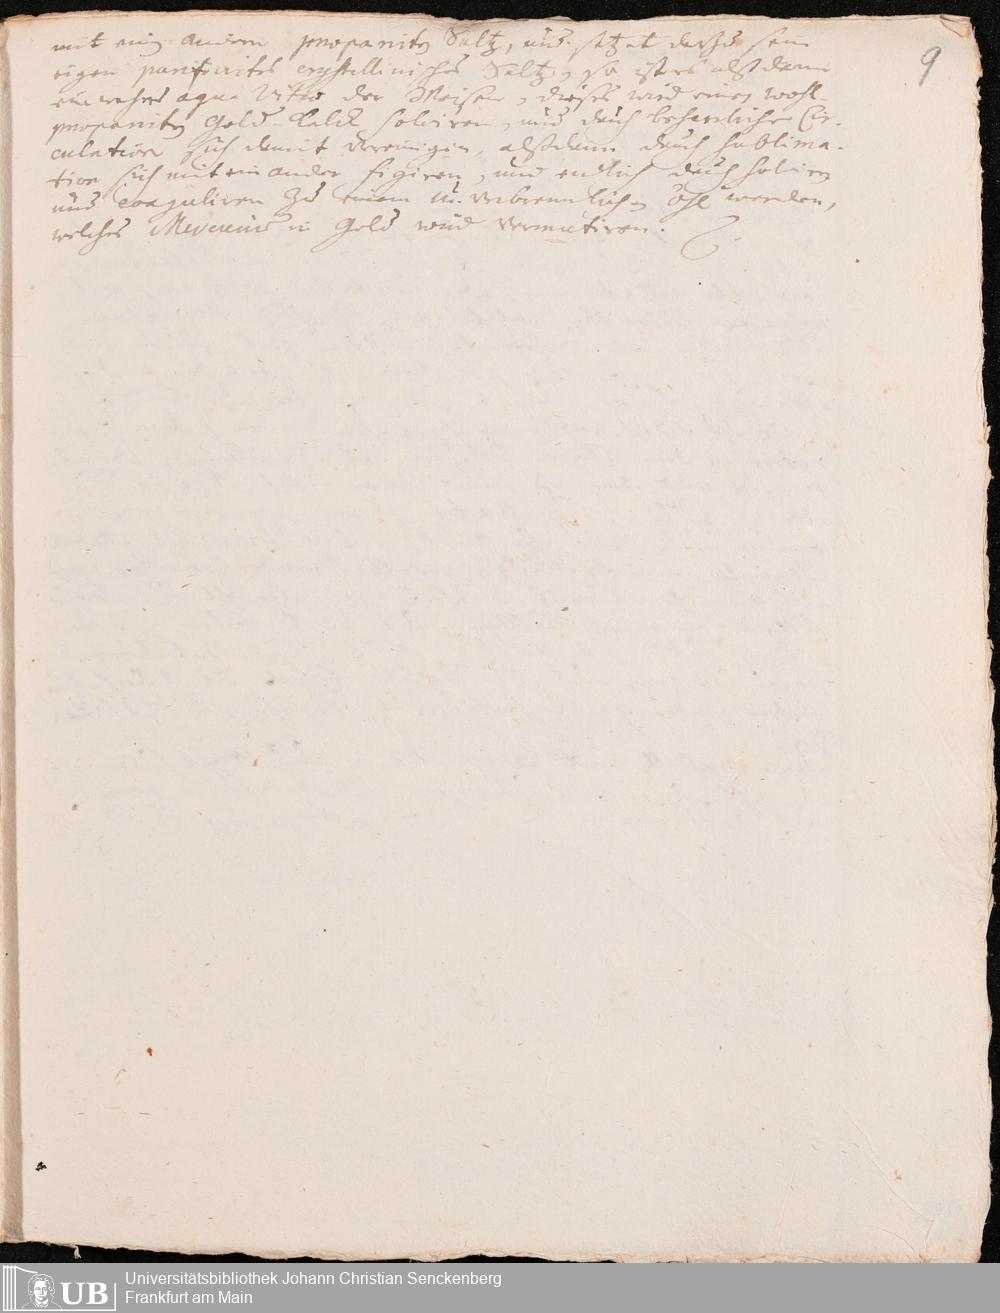 9
mit ein andern præparirtes Saltz, und setzet darzu sein
eigen purificirtes crystallinisches Saltz, so ists alßdann
ein wahres aqua vitæ der Weisen, dieses wird einen wohl-
præparirten Gold Calck solviren, und durch beharrliche Cir-
culation sich damit vereinigen, alßdann durch sublima-
tion sich mit ein ander figiren, und endlich durch solviren
und coaguliren zu einem unverbrennlichen Öhl werden,
welches Mercurium in Gold wird
Universitätsbibliothek Johann Christian Senckenberg
Frankfurt am Main
UB